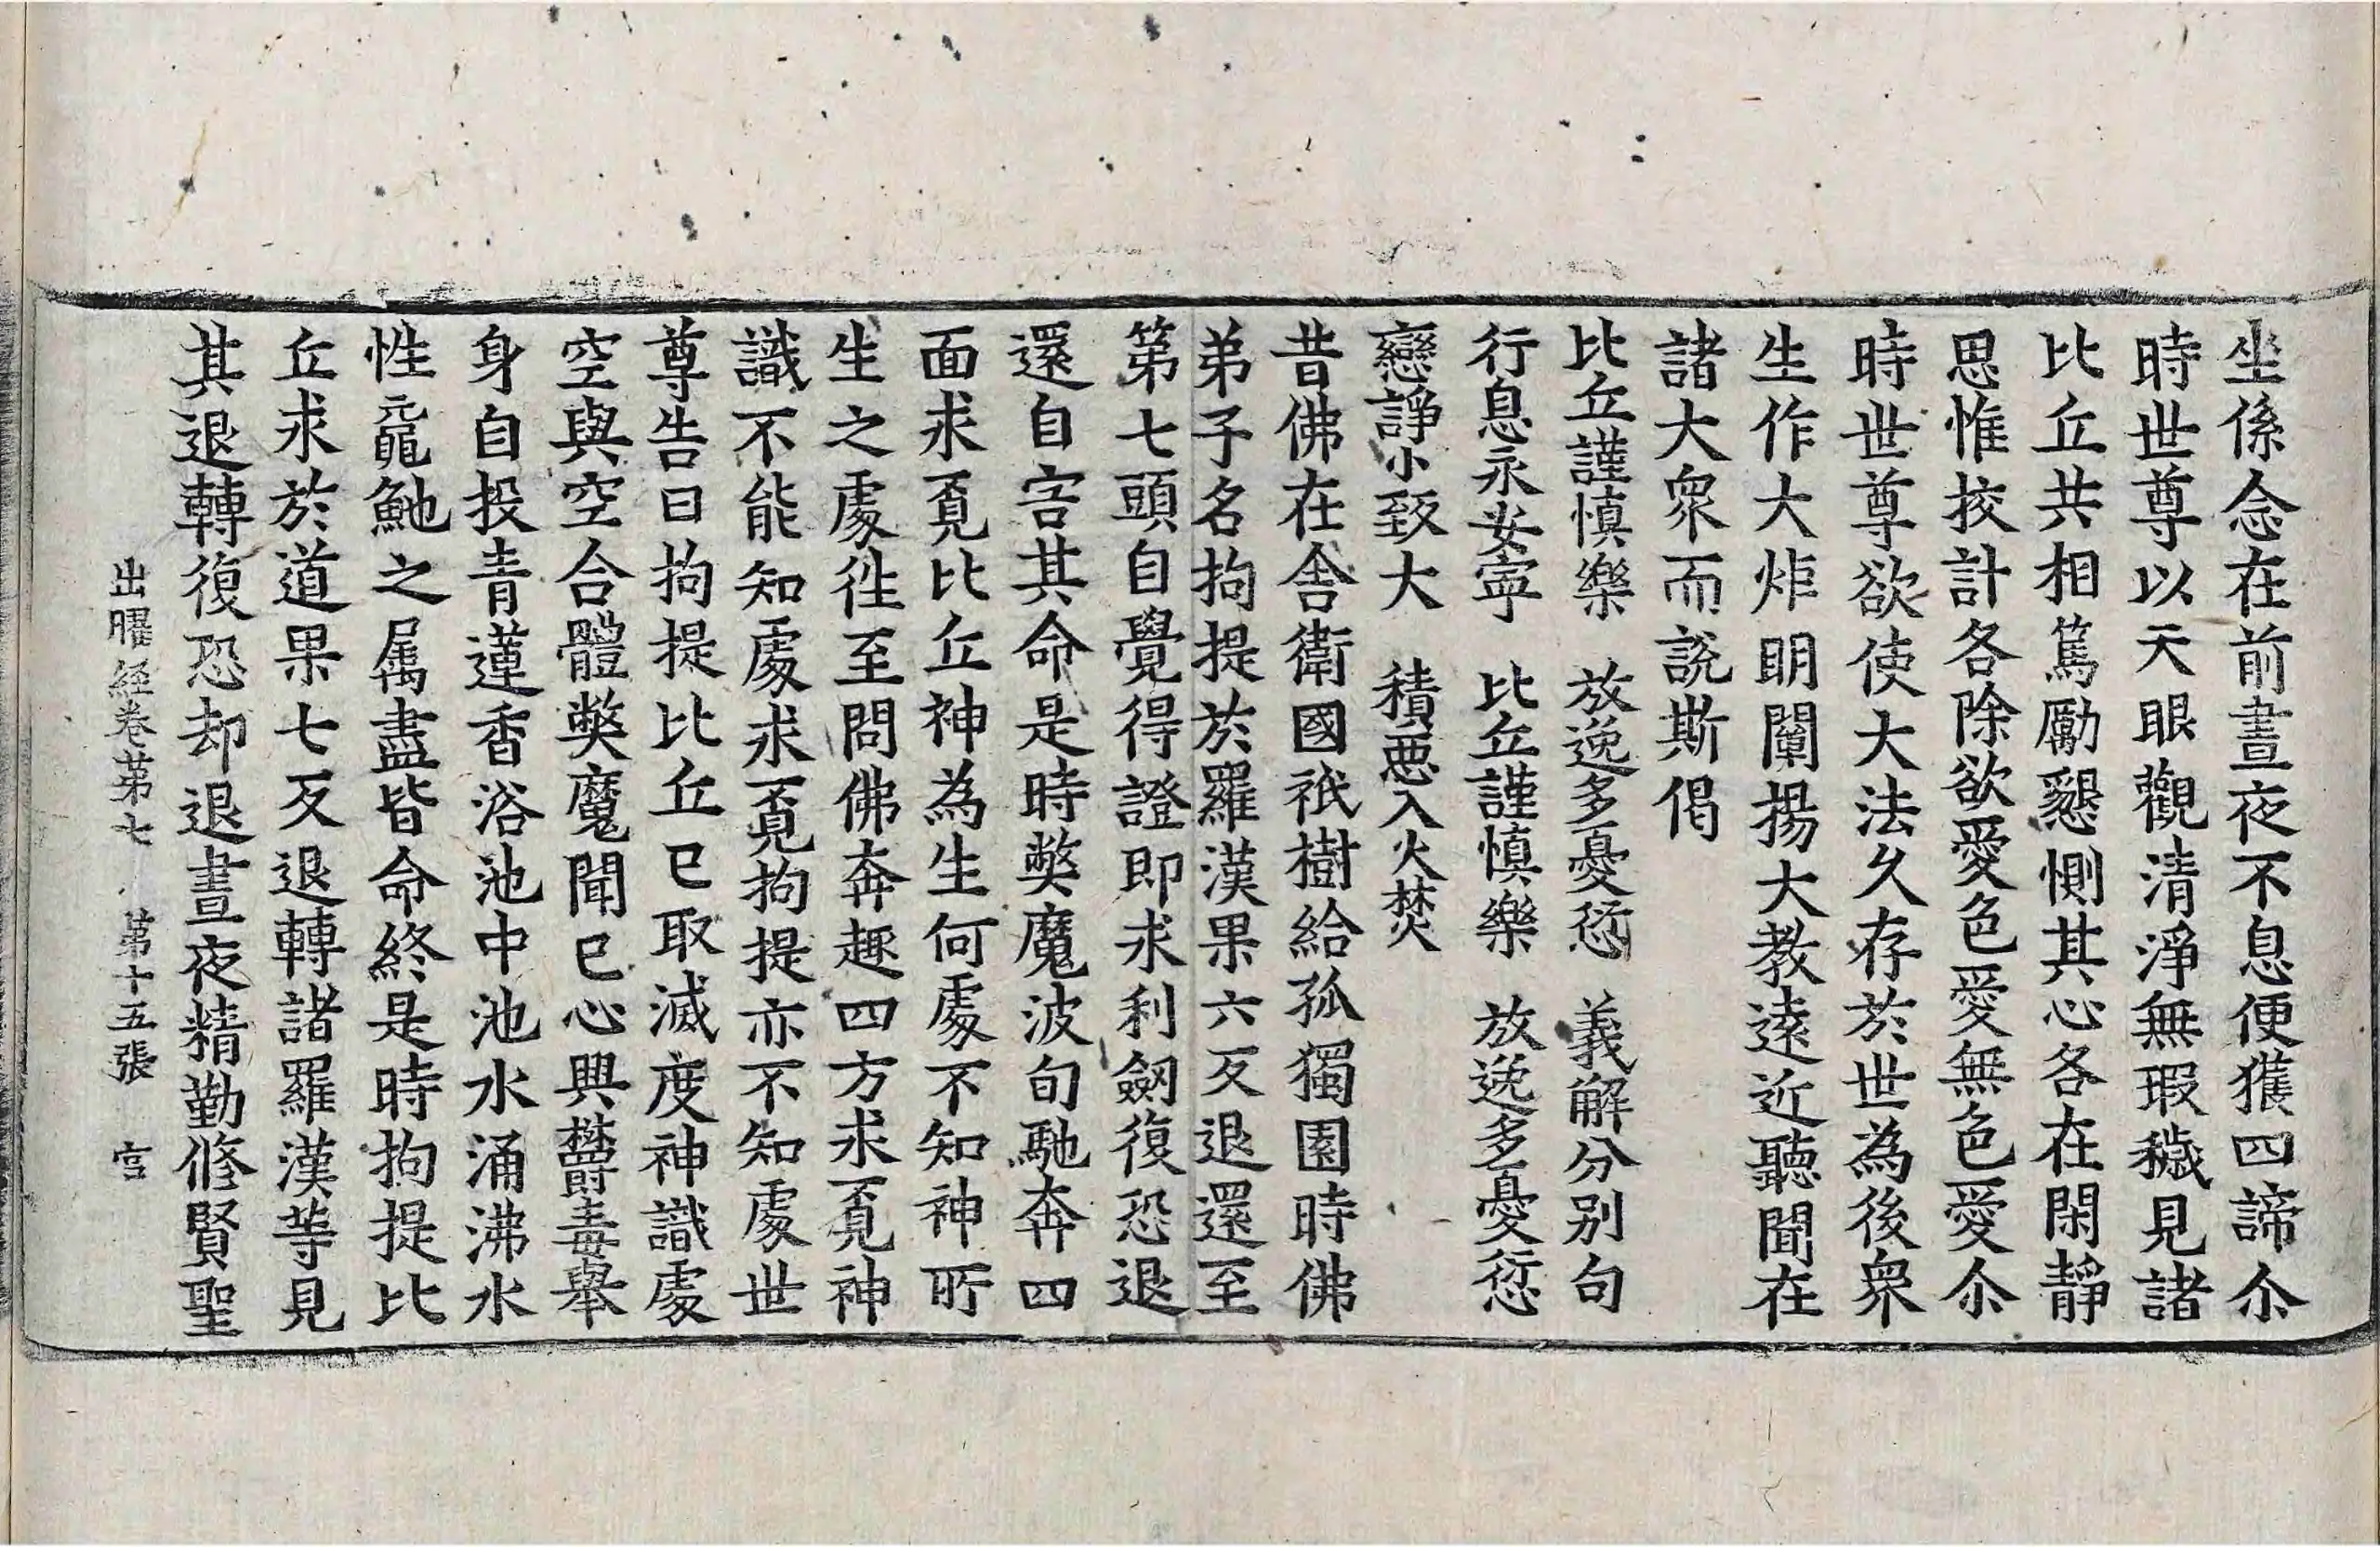 坐係念在前晝夜不息便獲四諦尒
時世尊以天眼觀清淨無瑕穢見諸
比丘共相篤勵懇惻其心各在閑靜
思惟挍計各除欲愛色愛無色愛尒
時世尊欲使大法久存於世為後衆
生作大炬明闡揚大教遠近聽聞在
諸大衆而說斯偈
比丘謹慎樂　放逸多憂愆　義解分别句
行息永安寧　比丘謹慎樂　放逸多憂愆
戀諍小致大　積惡入火焚
昔佛在舍衛國祇樹給孤獨園時佛
弟子名拘提於羅漢果六反退還至
第七頭自覺得證即求利劒復恐退
還自害其命是時弊魔波旬馳奔四
面求覓比丘神為生何處不知神所
生之處徃至問佛奔趣四方求覓神
識不能知處求覓拘提亦不知處世
尊告曰拘提比丘已取滅度神識處
空與空合體弊魔聞已心興欝毒舉
身自投青蓮香浴池中池水涌沸水
性黿鼉之属盡皆命終是時拘提比
丘求於道果七反退轉諸羅漢等見
其退轉復恐却退晝夜精勤修賢聖
出曜経卷第七　第十五張　宫